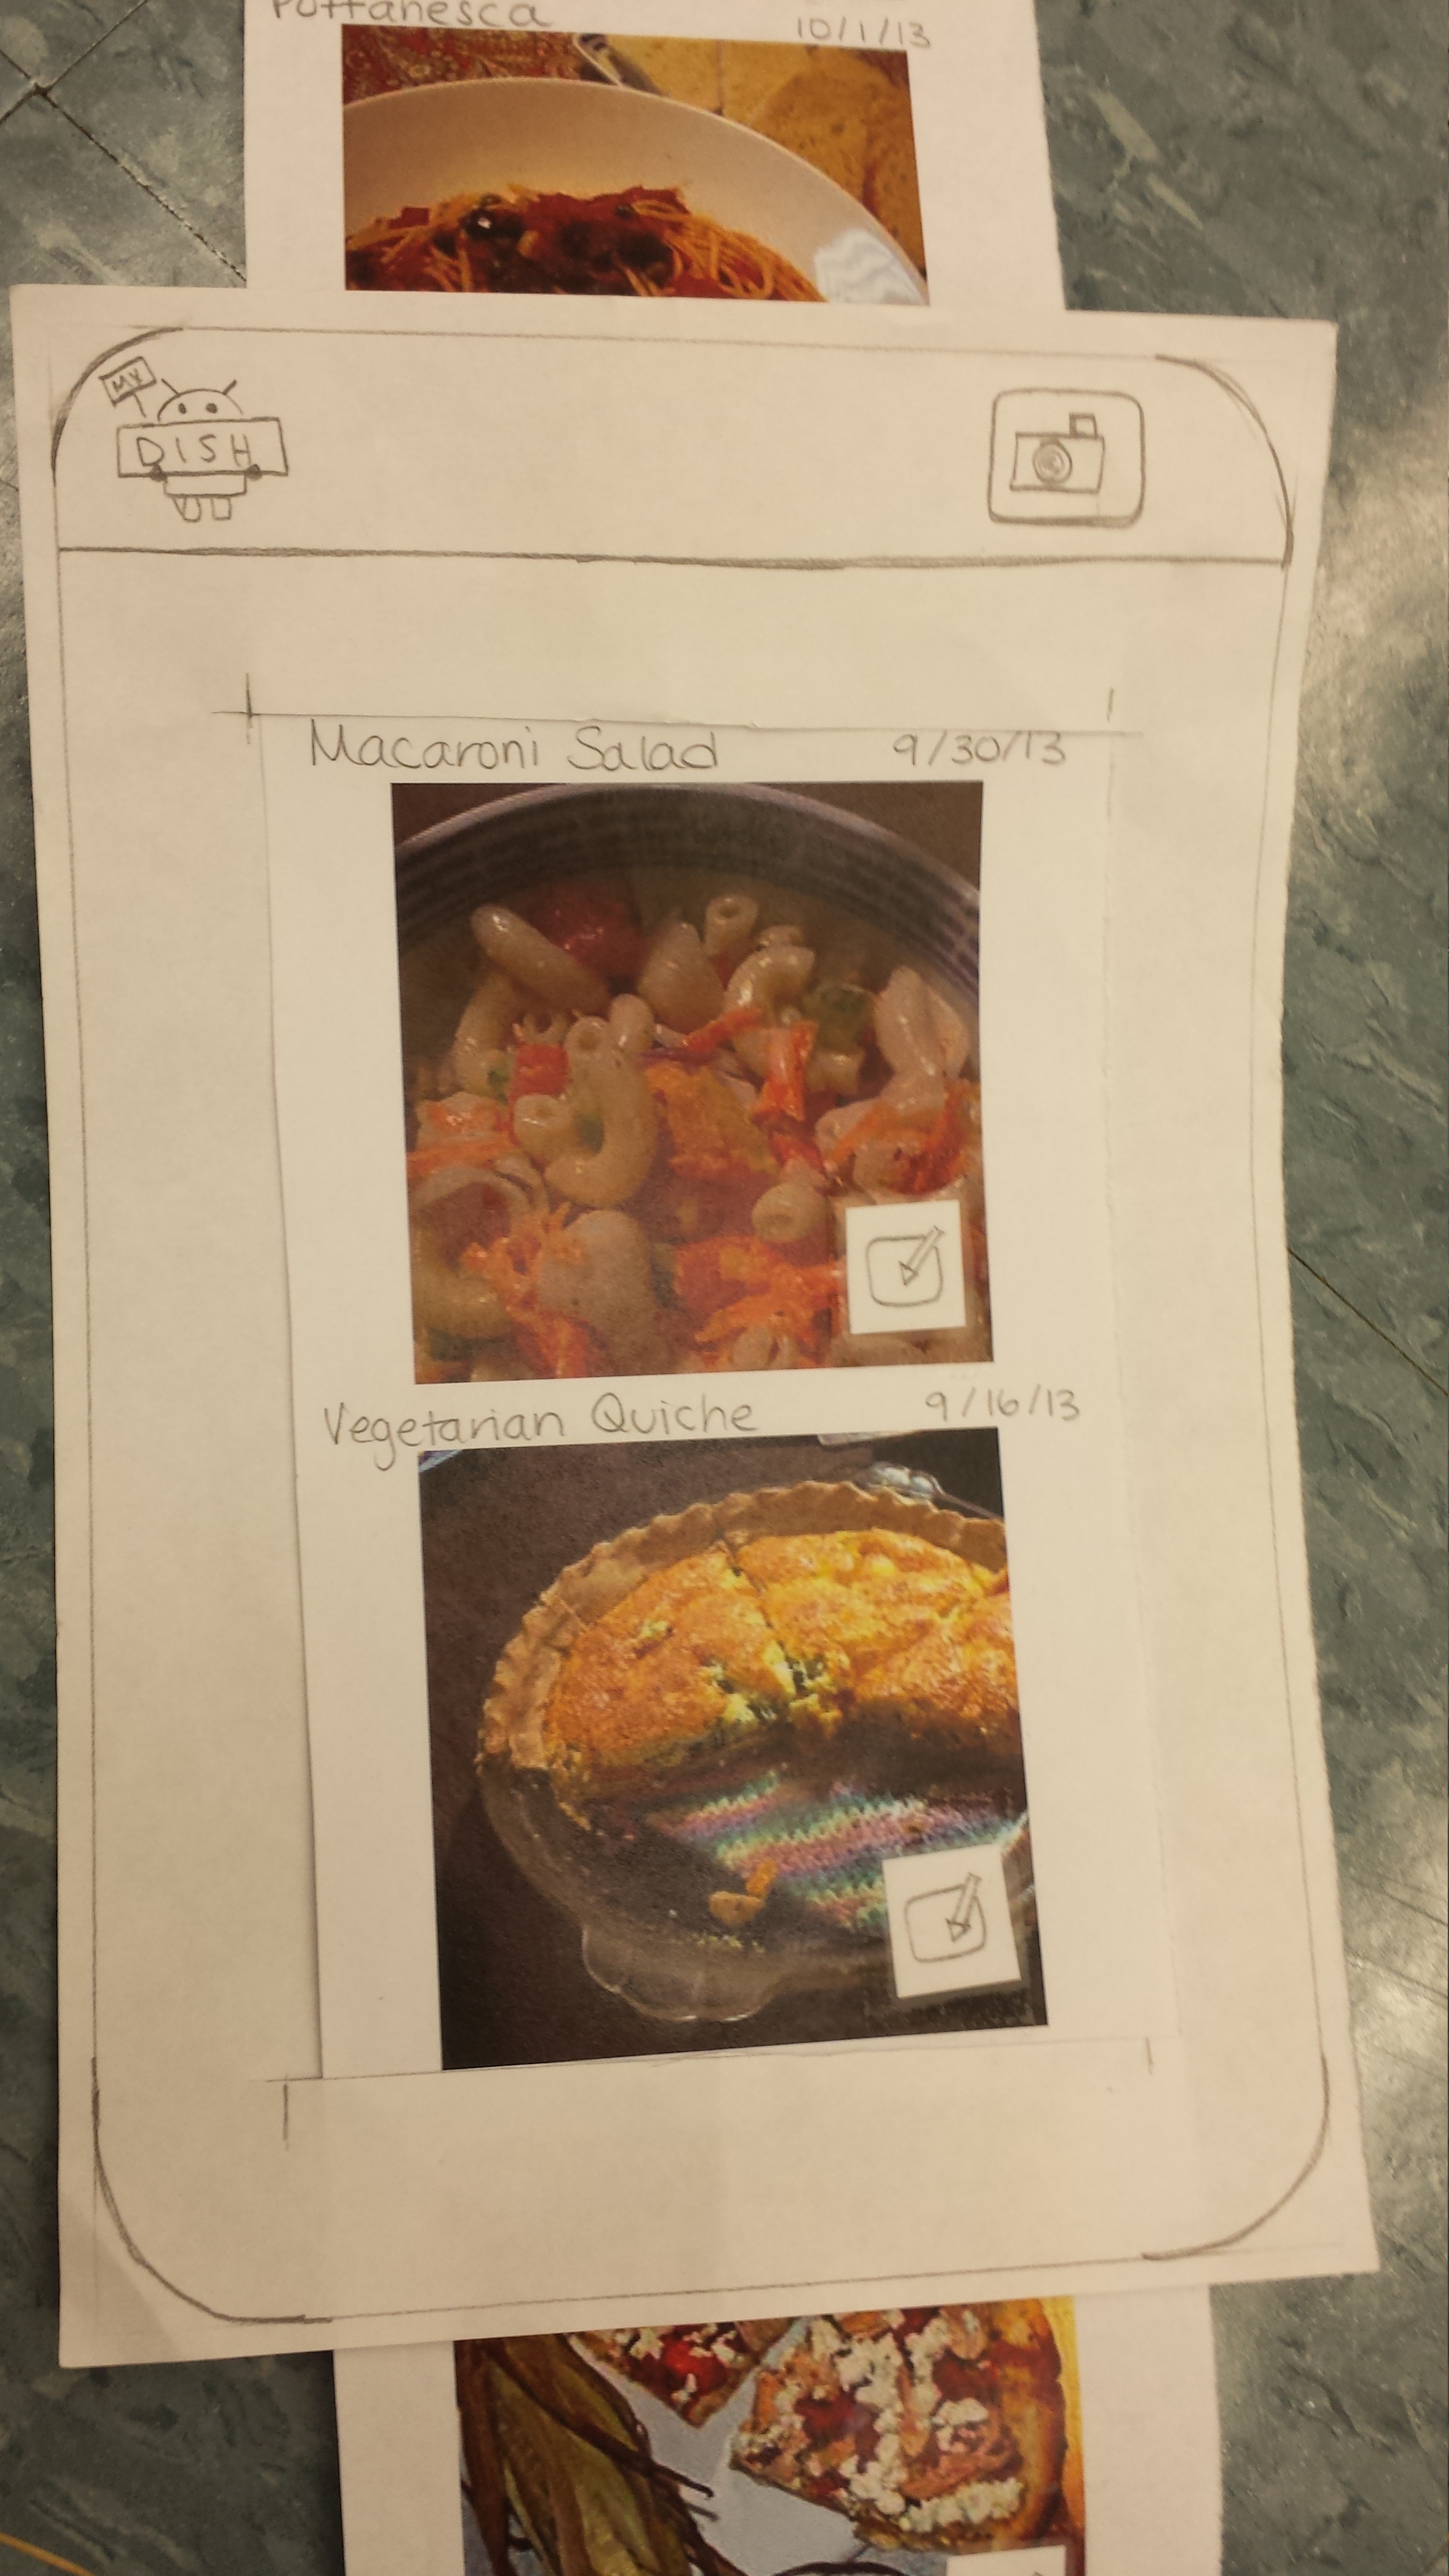 Puttanesca 10/1/13
MY
DISH
Macaroni Salad 9/30/13
Vegetarian Quiche 9/16/13